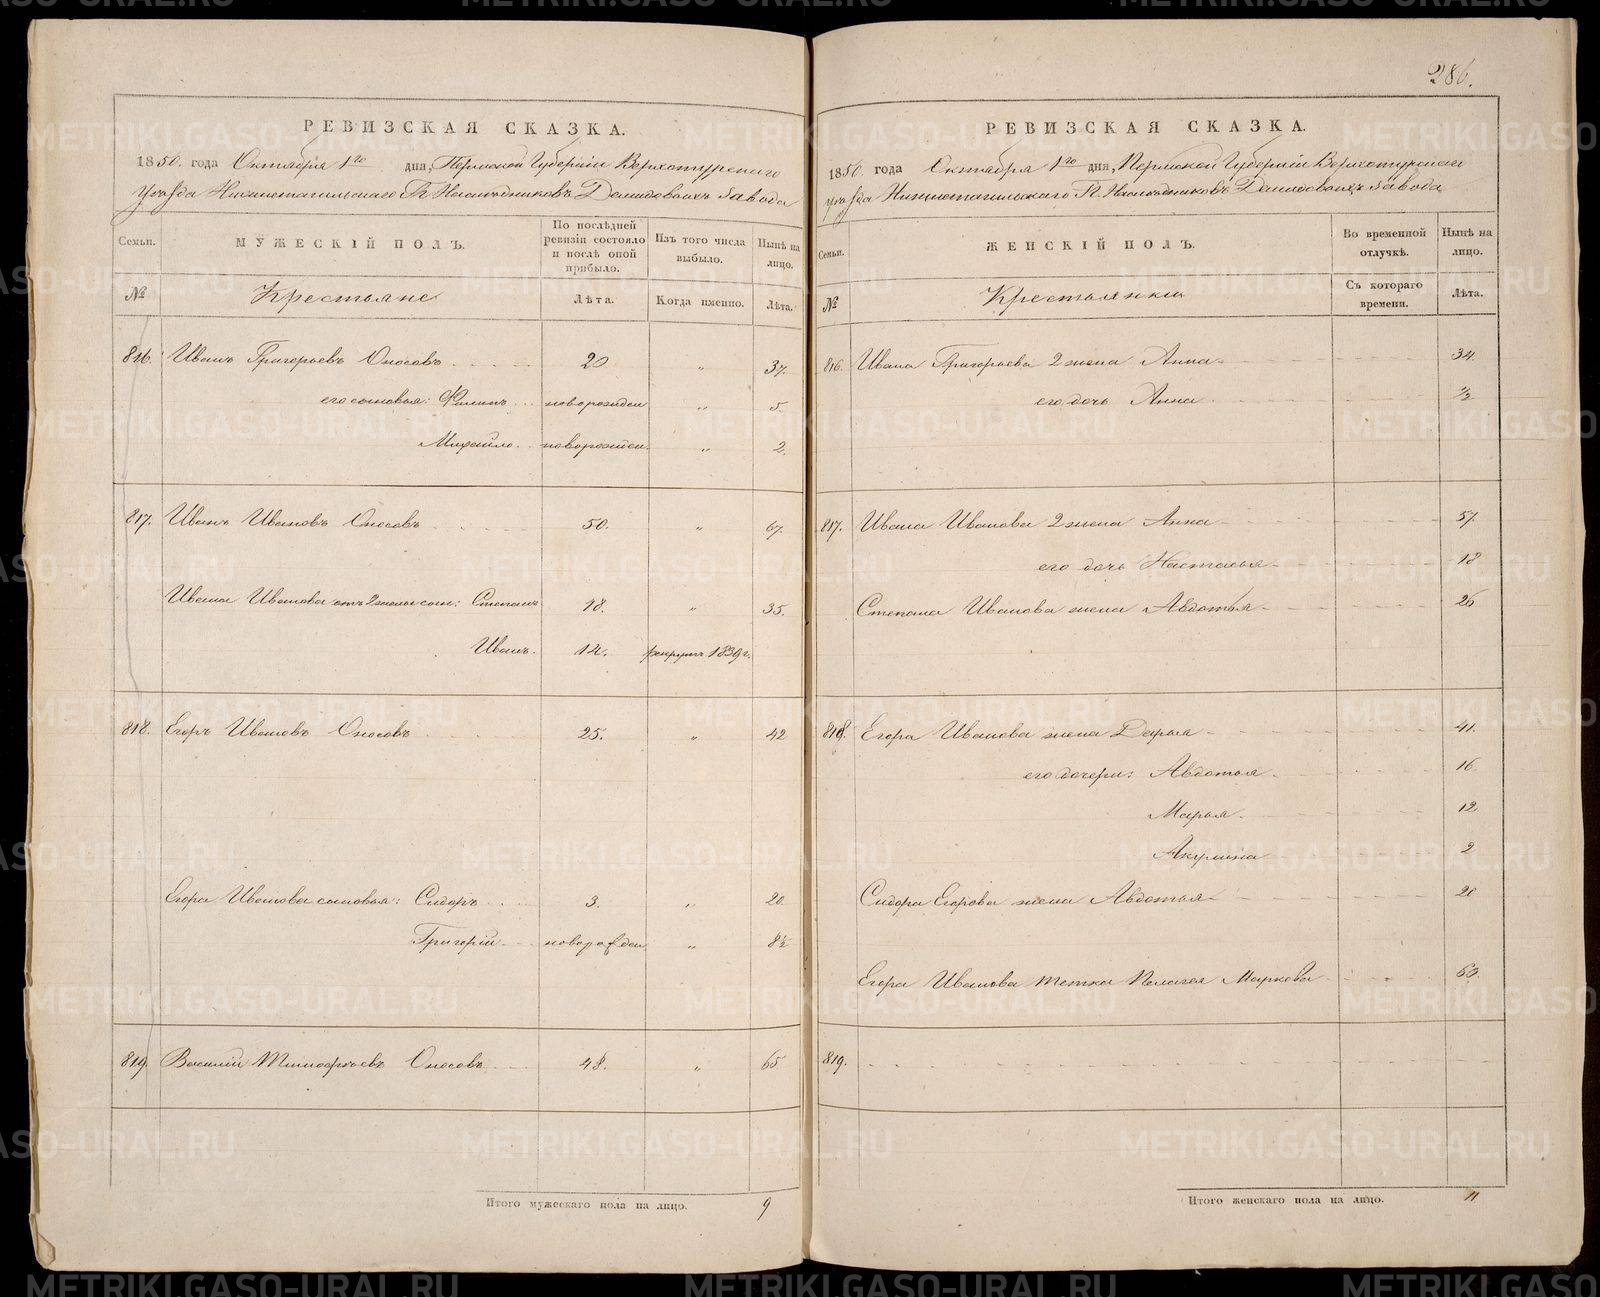 286.
РЕВИЗСКАЯ СКАЗКА.
1850. года Октября 1го дня, Пермской Губерніи Верхотурскаго
уѣзда Нижнетагильскаго Гг. Наслѣдниковъ Демидовыхъ Завода
Семьи. МУЖЕСКІЙ ПОЛЪ. По послѣдней ревизіи состояло и послѣ оной прибыло. Изъ того числа выбыло. Нынѣ на лицо.
№ Крестьяне Лѣта. Когда именно. Лѣта.
816. Иванъ Григорьевъ Оносовъ 20 " 37.
его сыновья: Филипъ новорожден " 5.
Михайло новорожден. " 2.
817. Иванъ Ивановъ Оносовъ 50. " 67.
Ивана Иванова отъ 2 жены сын: Степанъ 18. " 35.
Иванъ. 14. рекрутъ 1839 г.
818. Егоръ Ивановъ Оносовъ 25. " 42
Егора Иванова сыновья: Сидоръ 3. " 20
Григорій новорожден " 8½
819. Василій Тимофѣевъ Оносовъ 48. " 65
Итого мужескаго пола на лицо. 9
РЕВИЗСКАЯ СКАЗКА.
1850. года Октября 1го дня, Пермской Губерніи Верхотурскаго
уѣзда Нижнетагильскаго Гг. Наслѣдниковъ Демидовыхъ Завода
Семьи. ЖЕНСКІЙ ПОЛЪ. Во временной отлучкѣ. Нынѣ на лицо.
№ Крестьянки Съ котораго времени. Лѣта.
816. Ивана Григорьева 2 жена Анна 34.
его дочь Анна ½
817. Ивана Иванова 2 жена Анна 57.
его дочь Настасья 18
Степана Иванова жена Авдотья 26
818. Егора Иванова жена Дарья 41.
его дочери: Авдотья 16.
Марья 12
Акулина 2
Сидора Егорова жена Авдотья 20
Егора Иванова тетка Пелагея Маркова 63.
819.
Итого женскаго пола на лицо. 11
METRIKI.GASO-URAL.RU